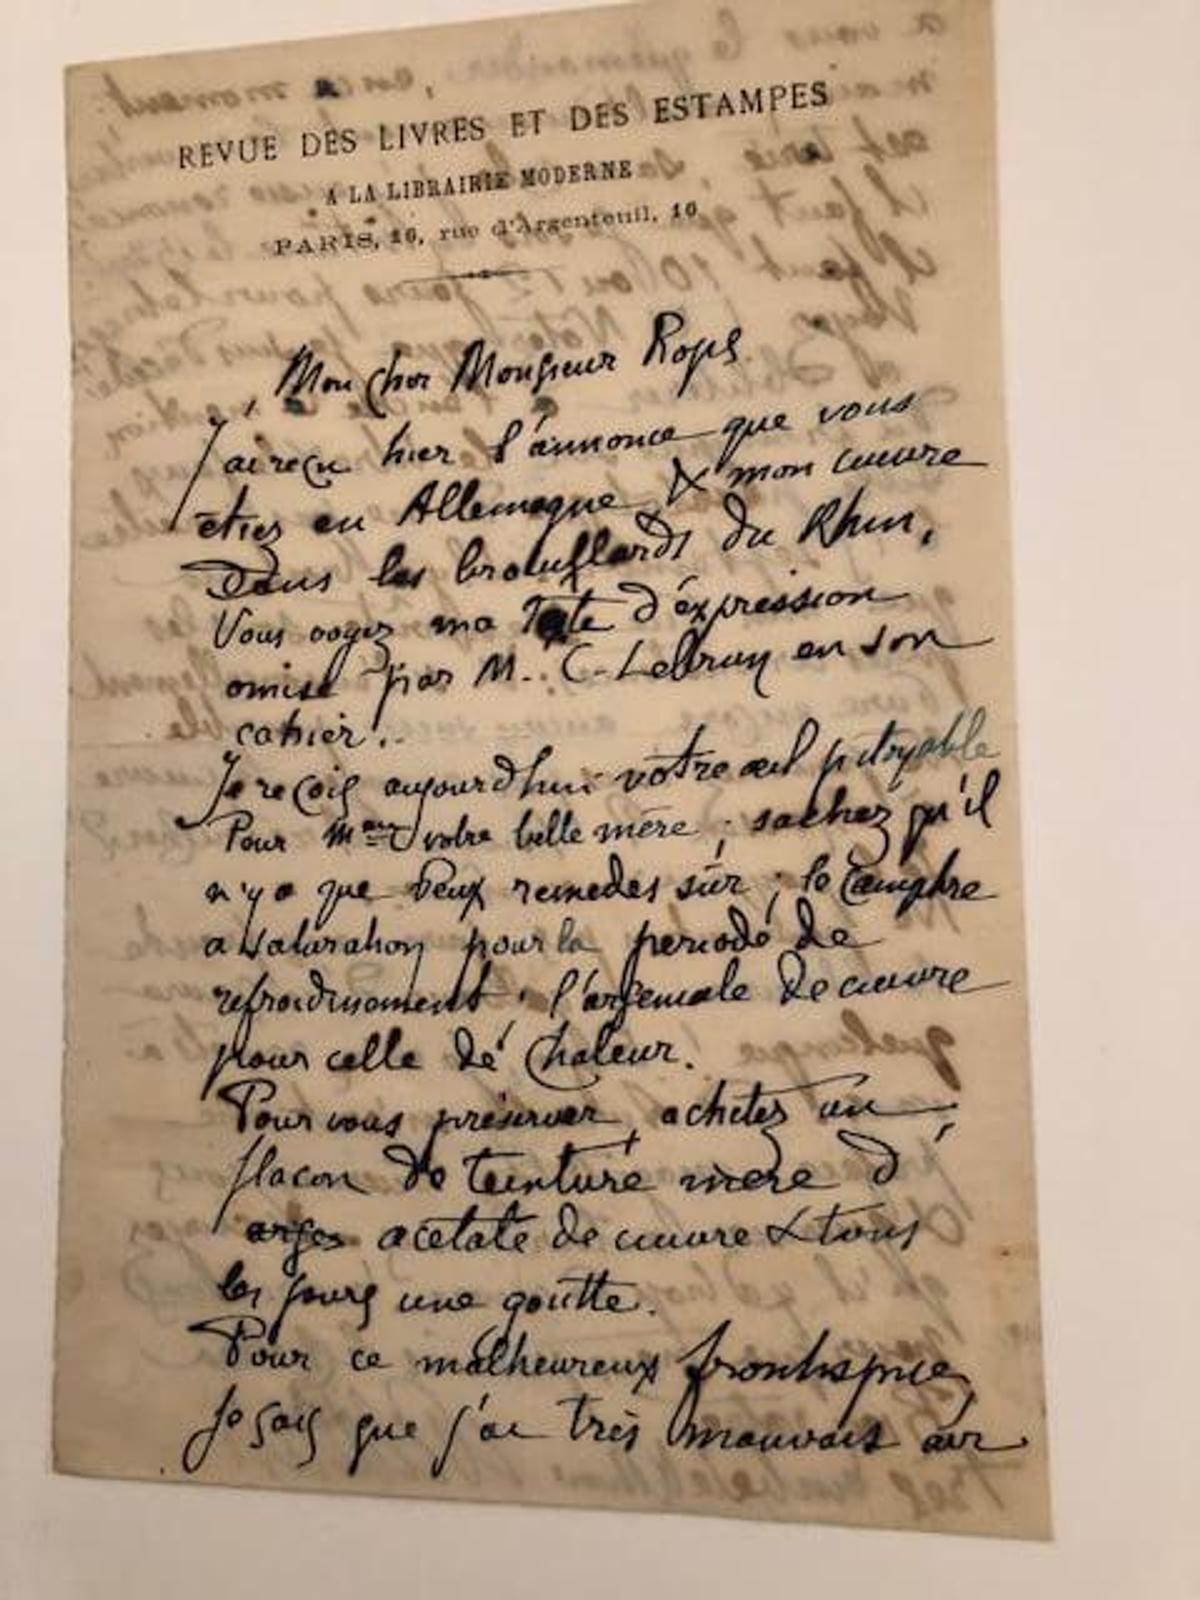 REVUE DES LIVRES ET DES ESTAMPES
A LA LIBRAIRIE MODERNE
PARIS, 16, rue d'Argenteuil, 16
Mon cher Monsieur Rops
J'ai reçu hier l'annonce que vous
étiez en Allemagne & mon cuivre
dans les brouillards du Rhin.
Vous voyez ma Tête d'éxpression
omise par M. C. Lebrun en son
cahier.
Je reçois aujourd'hui votre œil pitoyable
Pour Mme votre belle mère ; sachez qu'il
n'y a que deux remedes sûr ; le Camphre
a saturation pour la periode de
refroidissement, l'arseniate de cuivre
pour celle de Chaleur.
Pour vous préserver, achetez un
flacon de teinture mère d'
acétate de cuivre & tous
les jours une goutte.
Pour ce malheureux frontispice,
Je sais que j'ai très mauvais air